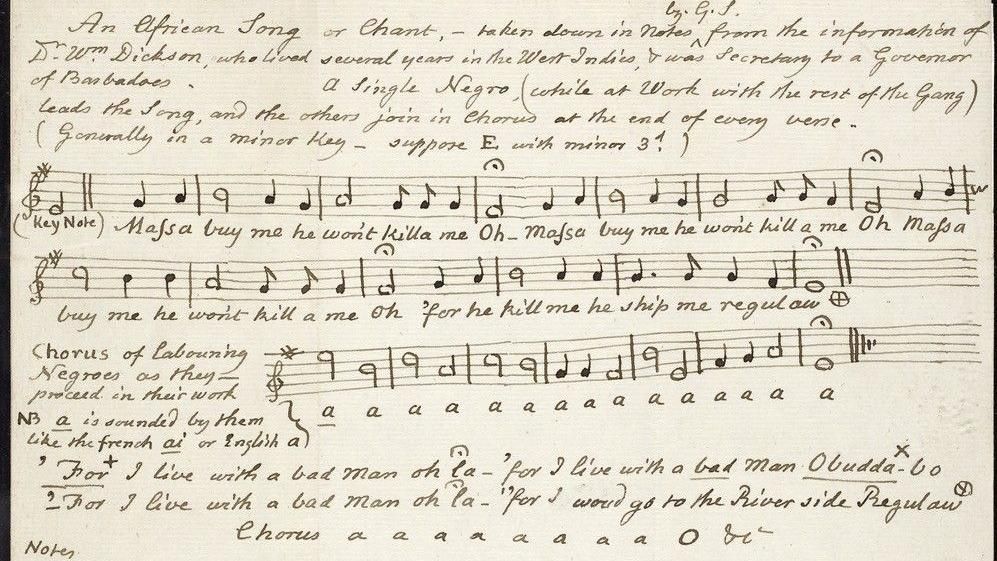 by G. S.
An African Song or Chant, – taken down in Notes, from the information of
Dr. Wm. Dickson, who lived several years in the West Indies, & was Secretary to a Governor
of Barbadoes. A Single Negro, (while at Work with the rest of the Gang)
leads the Song, and the others join in Chorus at the end of every verse –
(Generally in a minor Key – suppose E with minor 3d.)
(Key Note) Massa buy me he won't killa me Oh – Massa buy me he won't kill a me Oh Massa
buy me he won't kill a me Oh 'for he kill me he ship me regulaw ⊕
Chorus of labouring
Negroes as they –
proceed in their work
a a a a a a a a a a a a a
NB a is sounded by them
like the french ai or English a)
' For+ I live with a bad man oh la – 'for I live with a bad man Obudda-bo x
2 For I live with a bad man oh la – 'for I woud go to the River side Regulaw
Chorus a a a a a a a a O &c
Notes